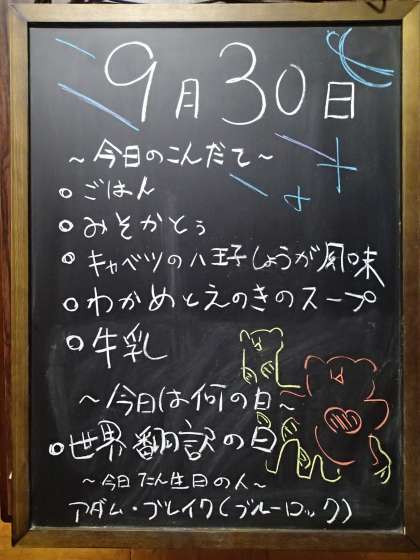 9月30日
～今日のこんだて～
○ごはん
○みそかとぅ
○キャベツの八王子しょうが風味
○わかめとえのきのスープ
○牛乳
～今日は何の日～
○世界翻訳の日
～今日たん生日の人～
アダム・ブレイク(ブルーロック)